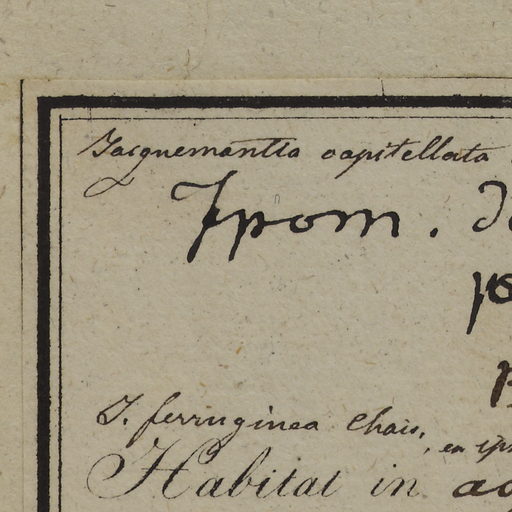 Jacquemantia capitellata
Ipom.
I. ferruginea Chois, en
Habitat in